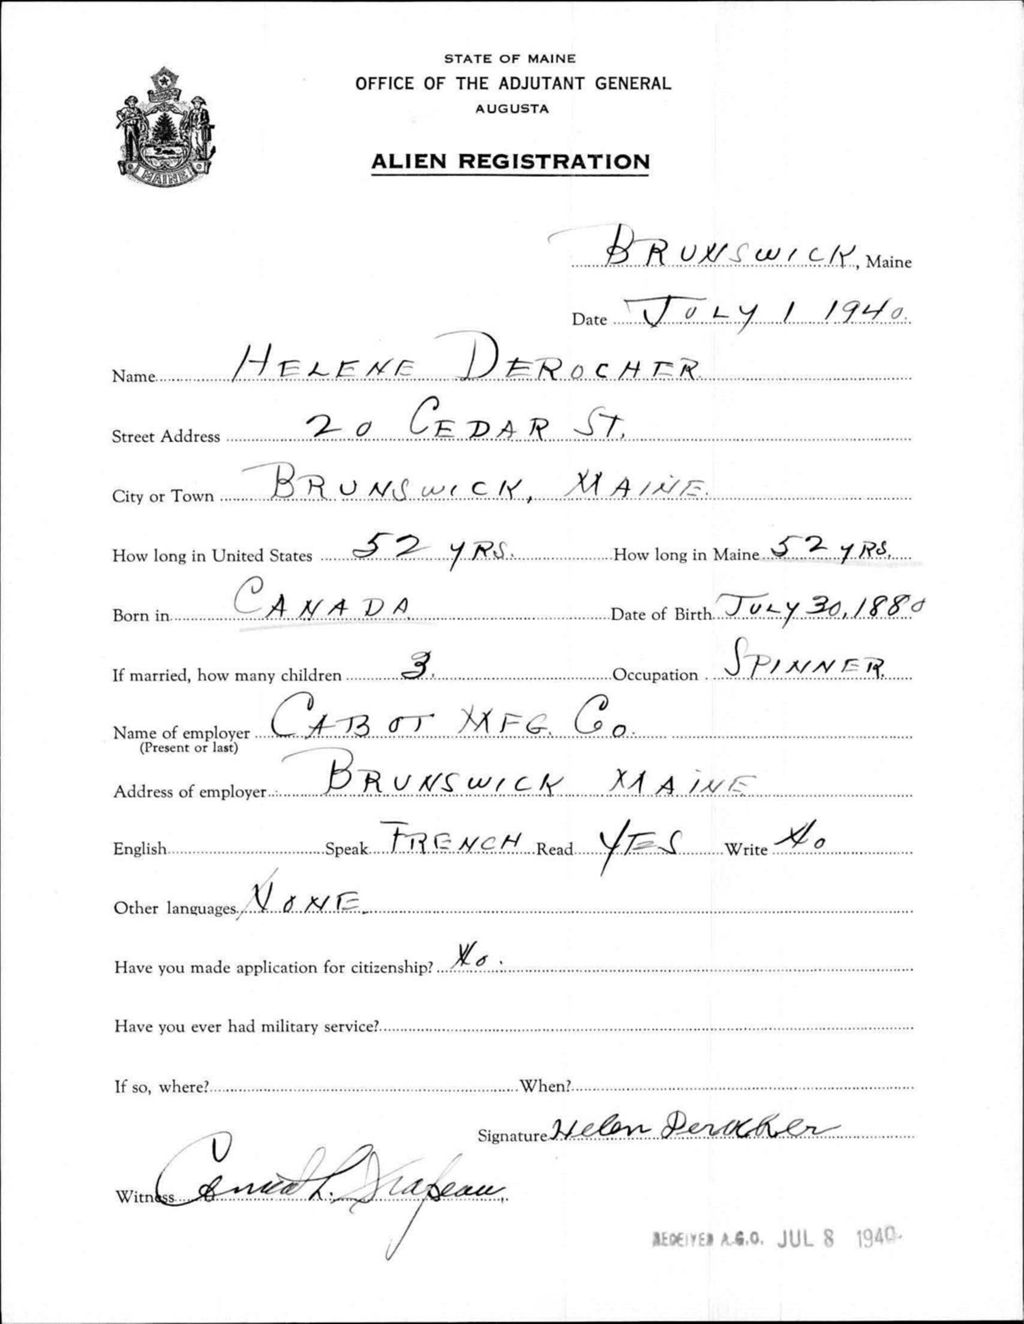 STATE OF MAINE
OFFICE OF THE ADJUTANT GENERAL
AUGUSTA
ALIEN REGISTRATION
MAINE
BRUNSWICK, Maine
Date JULY 1 1940.
Name HELENE DEROCHER
Street Address 20 CEDAR ST.
City or Town BRUNSWICK, MAINE.
How long in United States 52 YRS. How long in Maine 52 YRS.
Born in CANADA. Date of Birth JULY 30, 1880
If married, how many children 3. Occupation SPINNER.
Name of employer CABOT MFG. Co.
(Present or last)
Address of employer BRUNSWICK MAINE
English Speak FRENCH Read YES Write No
Other languages NONE.
Have you made application for citizenship? No.
Have you ever had military service?
If so, where? When?
Signature Helen Derocher
Witness L. Drapeau.
RECEIVED A.G.O. JUL 8 1940